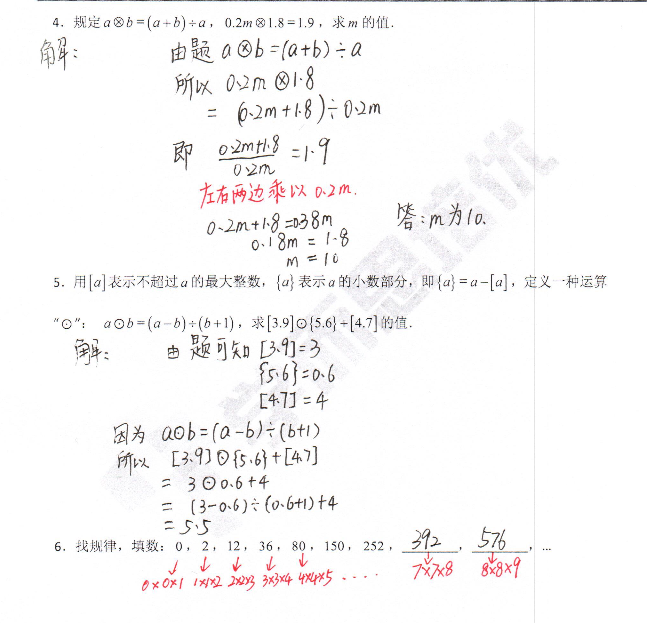 4．规定 a⊗b=(a+b)÷a，0.2m⊗1.8=1.9，求 m 的值．
解： 由题 a⊗b=(a+b)÷a
所以 0.2m⊗1.8
= (0.2m+1.8)÷0.2m
即 (0.2m+1.8)/0.2m =1.9
左右两边乘以 0.2m.
0.2m+1.8=0.38m
0.18m = 1.8
m = 10
答:m为10.
5．用[a]表示不超过a的最大整数，{a}表示a的小数部分，即{a}=a−[a]，定义一种运算
“⊙”： a⊙b=(a−b)÷(b+1)，求[3.9]⊙{5.6}+[4.7]的值．
解： 由题可知 [3.9]=3
{5.6}=0.6
[4.7]=4
因为 a⊙b=(a-b)÷(b+1)
所以 [3.9]⊙{5.6}+[4.7]
= 3⊙0.6+4
= (3-0.6)÷(0.6+1)+4
=5.5
6．找规律，填数：0，2，12，36，80，150，252，392，576，…
0×0×1 1×1×2 2×2×3 3×3×4 4×4×5 ···· 7×7×8 8×8×9
学而思培优